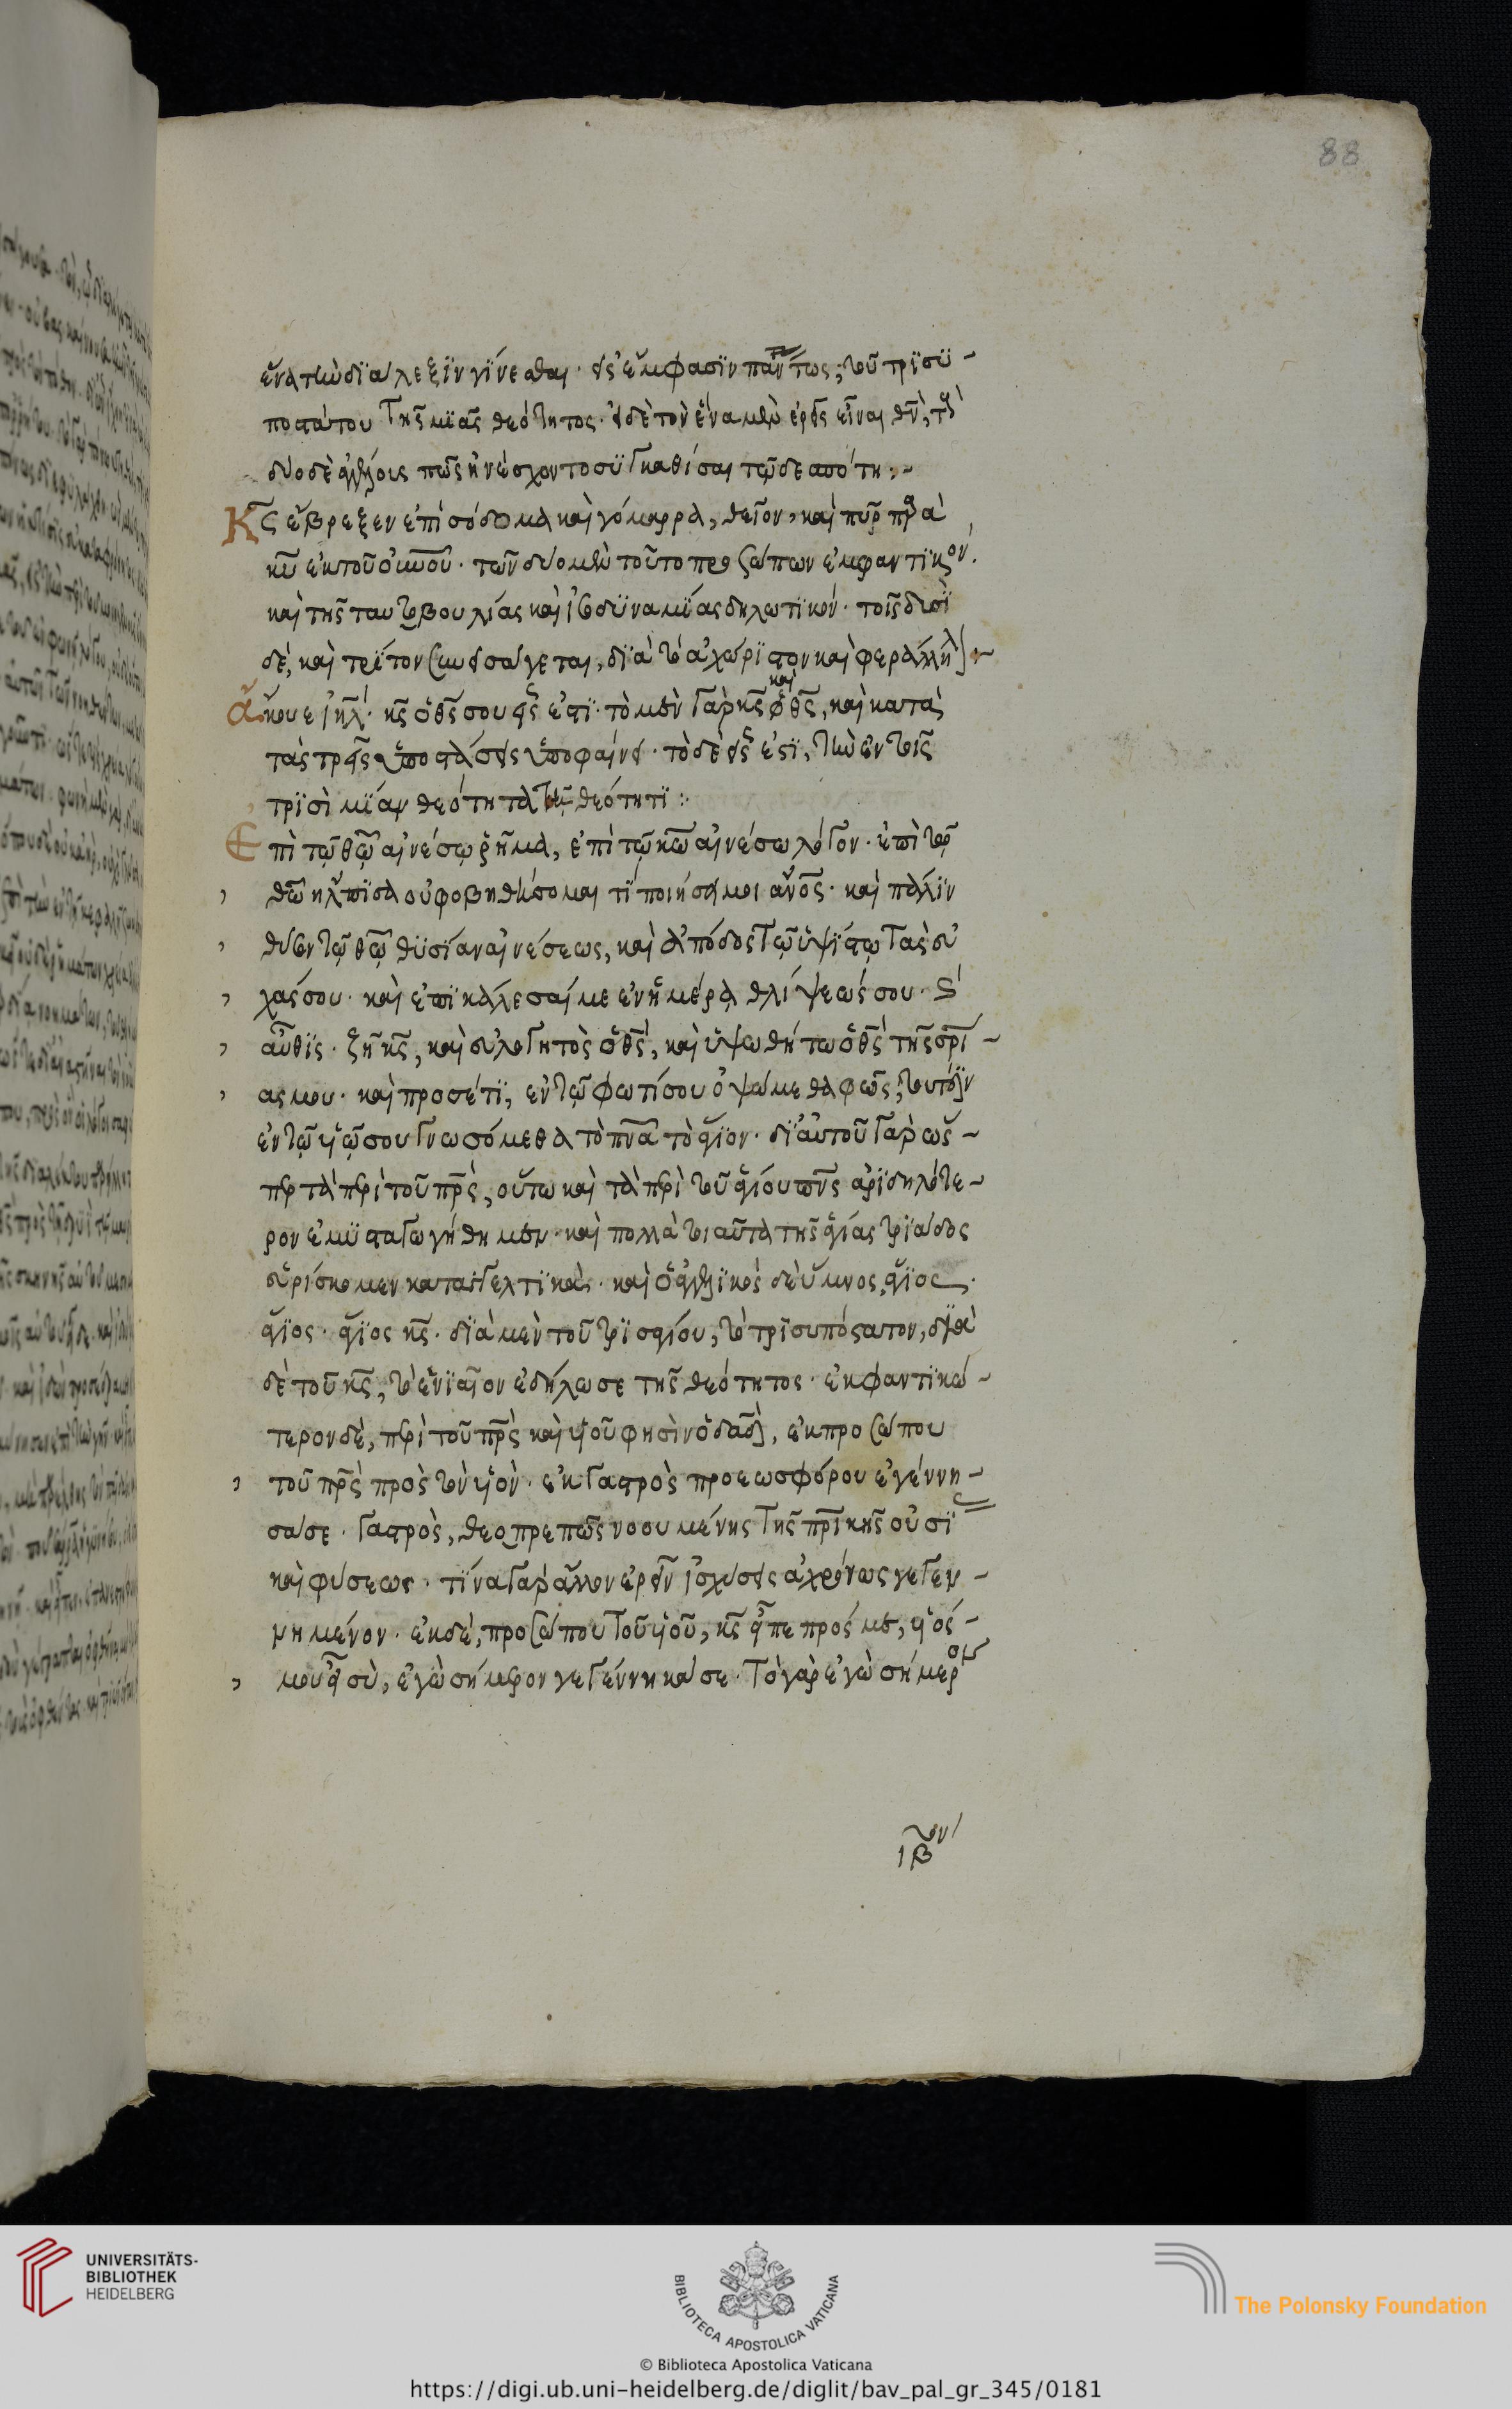 88
ἕνα τὴν διάλεξιν γίνεσθαι· εἰς ἔμφασιν πάντως, τοῦ τρισυ-
ποστάτου τῆς μιᾶς θεότητος· εἰ δὲ τὸν ἕνα μὲν ἐρεῖς εἶναι θν̅, τοὺς
δύο δὲ ἀγγέλοις πῶς ἠνέσχοντο συγκαθίσαι τῷ δεσπότη:~
Κς̅ ἔβρεξεν ἐπὶ σόδομα καὶ γόμορρα, θεῖον, καὶ πῦρ παρὰ
κυ̅ ἐκ τοῦ οὐνοῦ· τῶν δύο μὲν τοῦτο προσώπων ἐμφαντικόν.
καὶ τῆς ταυτοβουλίας καὶ ἰσοδυναμίας δηλωτικόν· τοῖς δυσὶ
δὲ, καὶ τρίτον συνεισάγεται, διὰ τὸ ἀχώριστον καὶ φεράλληλον
ἄκουε ιηλ̅· κς̅ ὁ θς̅ σου εἷς ἐστι· τὸ μὲν γὰρ κς̅ καὶ ὁ θς̅, καὶ κατὰ
τὰς τρεῖς ὑποστάσεις ὑποφαίνει· τὸ δὲ εἷς ἐστι, τὴν ἐν τοῖς
τρισὶ μίαν θεότητα θεότητι:
Ἐπὶ τῷ θω̅ αἰνέσω ῥῆμα, ἐπὶ τῷ κω̅ αἰνέσω λόγον· ἐπὶ τῷ
θω̅ ἤλπισα οὐ φοβηθήσομαι τί ποιήσει μοι ἄνος̅· καὶ πάλιν
θῦσον τῷ θω̅ θυσίαν αἰνέσεως, καὶ ἀπόδος τῷ ὑψίστῳ τὰς εὐ
χάς σου· καὶ ἐπικάλεσαί με ἐν ἡμέρᾳ θλίψεώς σου· καὶ
αὖθις· ζῇ κς̅, καὶ εὐλογητὸς ὁ θς̅, καὶ ὑψωθήτω ὁ θς̅ τῆς σρι̅-
ας μου· καὶ προσέτι, ἐν τῷ φωτί σου ὀψόμεθα φῶς, τουτέστιν
ἐν τῷ υἱῷ σου γνωσόμεθα τὸ πνα̅ τὸ ἅγιον· δι' αὐτοῦ γὰρ ὥσ-
περ τὰ περὶ τοῦ πρς̅, οὕτω καὶ τὰ περὶ τοῦ ἁγίου πνς̅ ἀριδηλότε-
ρον ἐμυσταγωγήθημεν· καὶ πολλὰ τοιαῦτα τῆς ἁγίας τριάδος
εὑρίσκομεν καταγγελτικὰ· καὶ ὁ ἀγγελικὸς δὲ ὕμνος, ἅγιος.
ἅγιος· ἅγιος κς̅· διὰ μὲν τοῦ τρισαγίου, τὸ τρισυπόστατον, διὰ
δὲ τοῦ κς̅, τὸ ἑνιαῖον ἐδήλωσε τῆς θεότητος· ἐκφαντικώ-
τερον δὲ, περὶ τοῦ πρς̅ καὶ υἱοῦ φησὶν ὁ δαδ̅, ἐκ προσώπου
τοῦ πρς̅ πρὸς τὸν υἱὸν· ἐκ γαστρὸς πρὸ ἑωσφόρου ἐγέννη-
σά σε· γαστρὸς, θεοπρεπῶς νοουμένης τῆς πρικῆς οὐσί
καὶ φύσεως· τίνα γὰρ ἄλλον ἐρεῖν ἰσχύσεις ἀχρόνως γεγεν-
νημένον· ἐκ δὲ, προσώπου τοῦ υἱοῦ, κς̅ εἶπε πρός με, υἱός-
μου εἶ σὺ, ἐγὼ σήμερον γεγέννηκά σε· τὸ γὰρ ἐγὼ σήμερον
ιβον
UNIVERSITÄTS-
BIBLIOTHEK
HEIDELBERG
BIBLIOTECA APOSTOLICA VATICANA
The Polonsky Foundation
© Biblioteca Apostolica Vaticana
https://digi.ub.uni-heidelberg.de/diglit/bav_pal_gr_345/0181